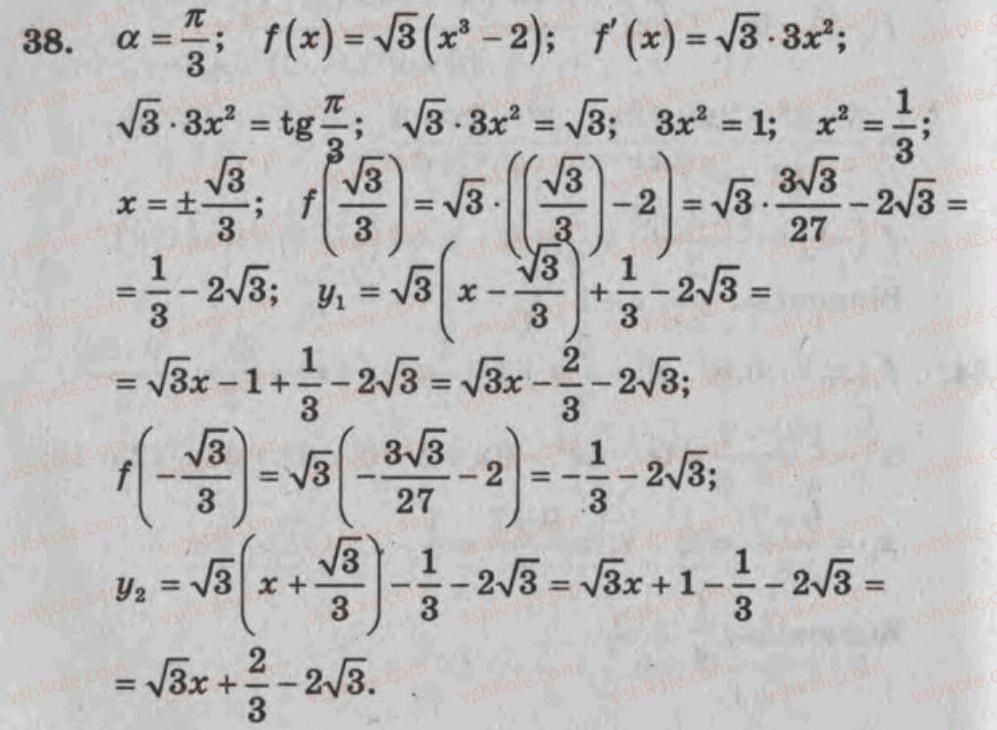 38. α = π/3; f(x) = √3(x³ − 2); f′(x) = √3 · 3x²;
√3 · 3x² = tg π/3; √3 · 3x² = √3; 3x² = 1; x² = 1/3;
x = ±√3/3; f(√3/3) = √3 · ((√3/3) − 2) = √3 · 3√3/27 − 2√3 =
= 1/3 − 2√3; y₁ = √3(x − √3/3) + 1/3 − 2√3 =
= √3x − 1 + 1/3 − 2√3 = √3x − 2/3 − 2√3;
f(−√3/3) = √3(−3√3/27 − 2) = −1/3 − 2√3;
y₂ = √3(x + √3/3) − 1/3 − 2√3 = √3x + 1 − 1/3 − 2√3 =
= √3x + 2/3 − 2√3.
vshkole.com